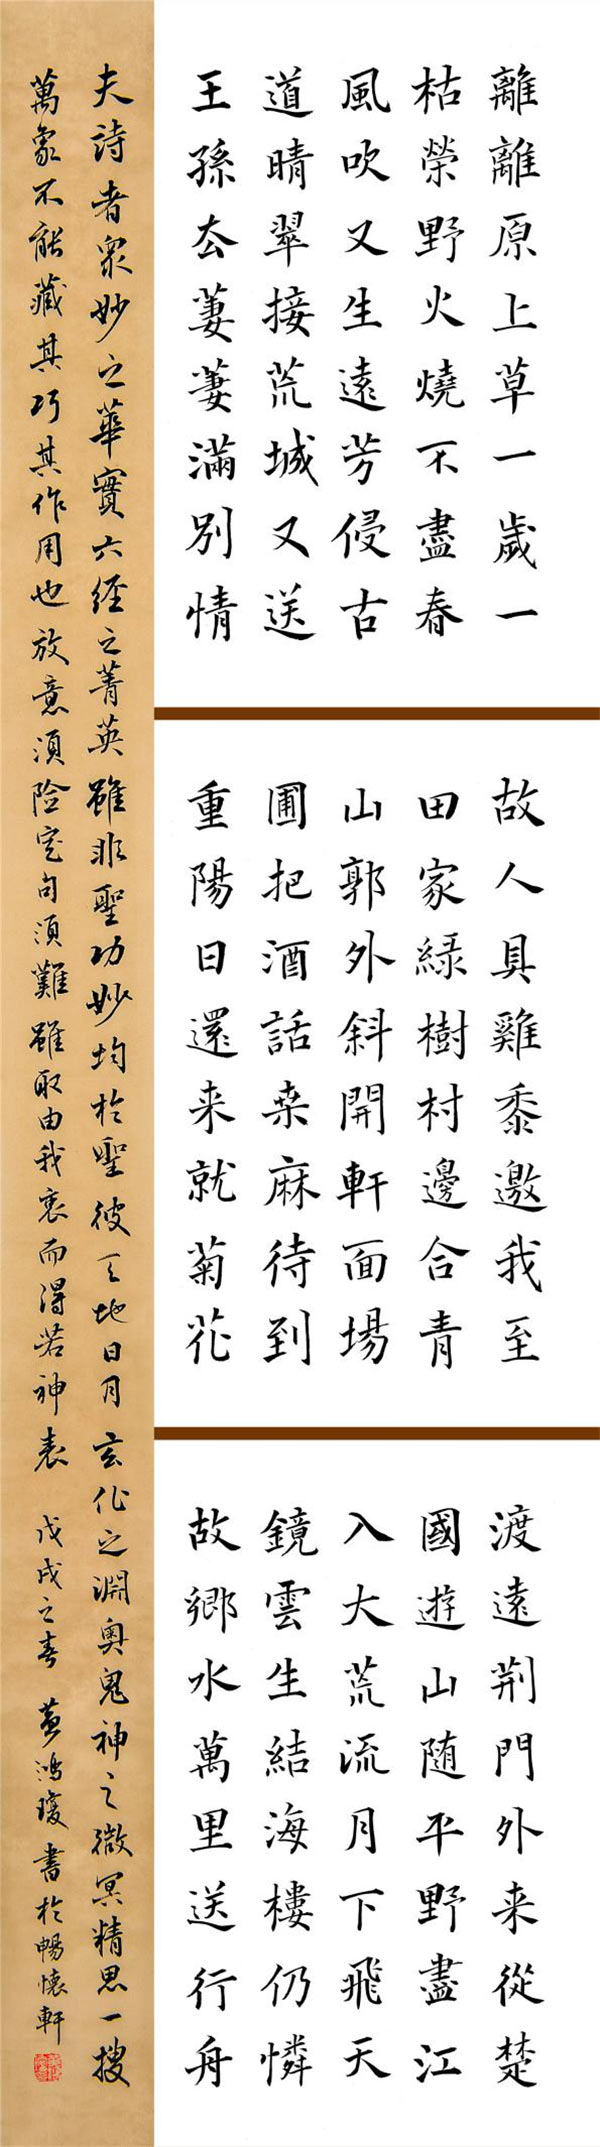 離離原上草一歲一
枯榮野火燒不盡春
風吹又生遠芳侵古
道晴翠接荒城又送
王孫去萋萋滿別情
故人具雞黍邀我至
田家綠樹村邊合青
山郭外斜開軒面場
圃把酒話桑麻待到
重陽日還来就菊花
渡遠荊門外来從楚
國遊山随平野盡江
入大荒流月下飛天
鏡雲生結海樓仍憐
故鄉水萬里送行舟
夫詩者眾妙之華實六經之菁英雖非聖功妙均於聖彼天地日月玄化之淵奧鬼神之微冥精思一搜
萬象不能藏其巧其作用也放意須险定句須難雖取由我衷而得若神表 戊戌之春 黃鴻瓊書於暢懷軒